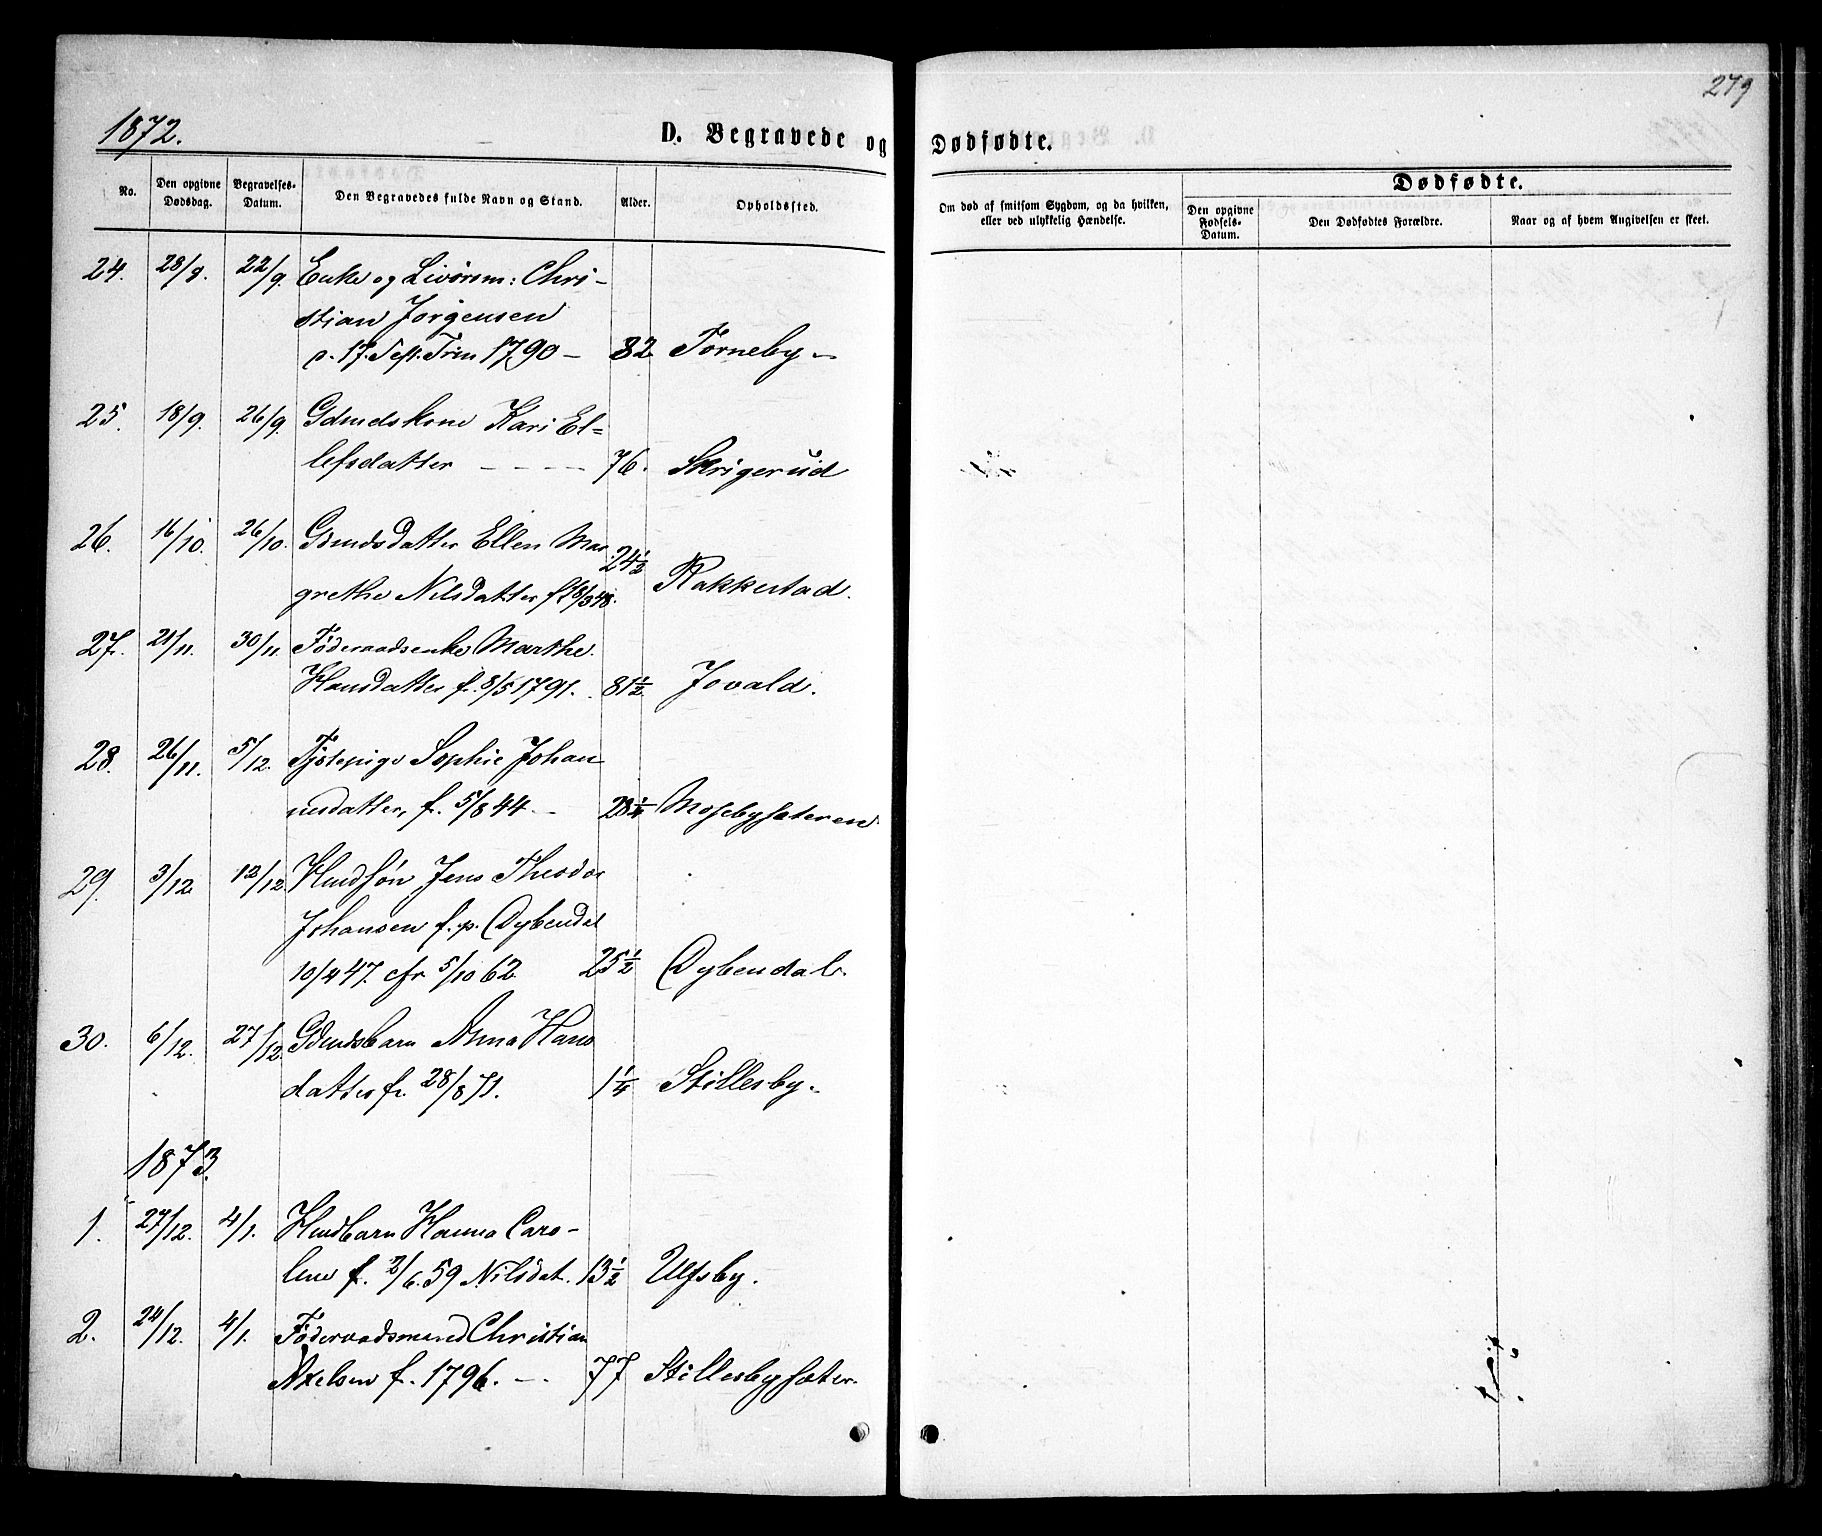 279
1872.
D. Begravede og Dødfødte.
No.
Den opgivne Dødsdag.
Begravelses-Datum.
Den Begravedes fulde Navn og Stand.
Alder.
Opholdssted.
Om død af smitsom Sygdom, og da hvilken,
eller ved ulykkelig Hændelse.
Dødfødte.
Den opgivne Fødsels-Datum.
Den Dødfødtes Forældre.
Naar og af hvem Angivelsen er skeet.
24. 28/8. 22/9. Enke og Chri-
stian Jørgensen
17. Trin 1790 - 82 Torneby -
25. 18/9. 26/9. Gdmdskone Kari El=
lefsdatter - - - - 76. Skrigerud
26. 16/10. 26/10. Gdmdsdatter Ellen Mar
grethe Nilsdatter f. 18/3 48. 24½ Rakkestad.
27. 21/11. 30/11. Føderaadsenke Marthe
Hansdatter f. 8/5 1791. 81½ Jovald.
28. 26/11. 5/12. Tjstepige Sophie Johan
nesdatter, f. 5/8 44 - 28¼ Mosebysæteren
29. 3/12. 12/12. Hmdsøn Jens Theodor
Johansen f. p. Dybendal
10/4 47. cfr 5/10 62. 25½ Dybendal.
30. 6/12. 27/12. Gdmdsbarn Anna Hans
datter f. 28/8 71. 1¼ Stillesby.
1873.
1. 27/12. 4/1. Hmdbarn Hanna Caro-
line f. 2/6. 59 Nilsdat. 13½ Ulfsby.
2. 24/12. 4/1. Føderaadsmand Christian
Axelsen f. 1796. - . 77 Stillesbysæter.